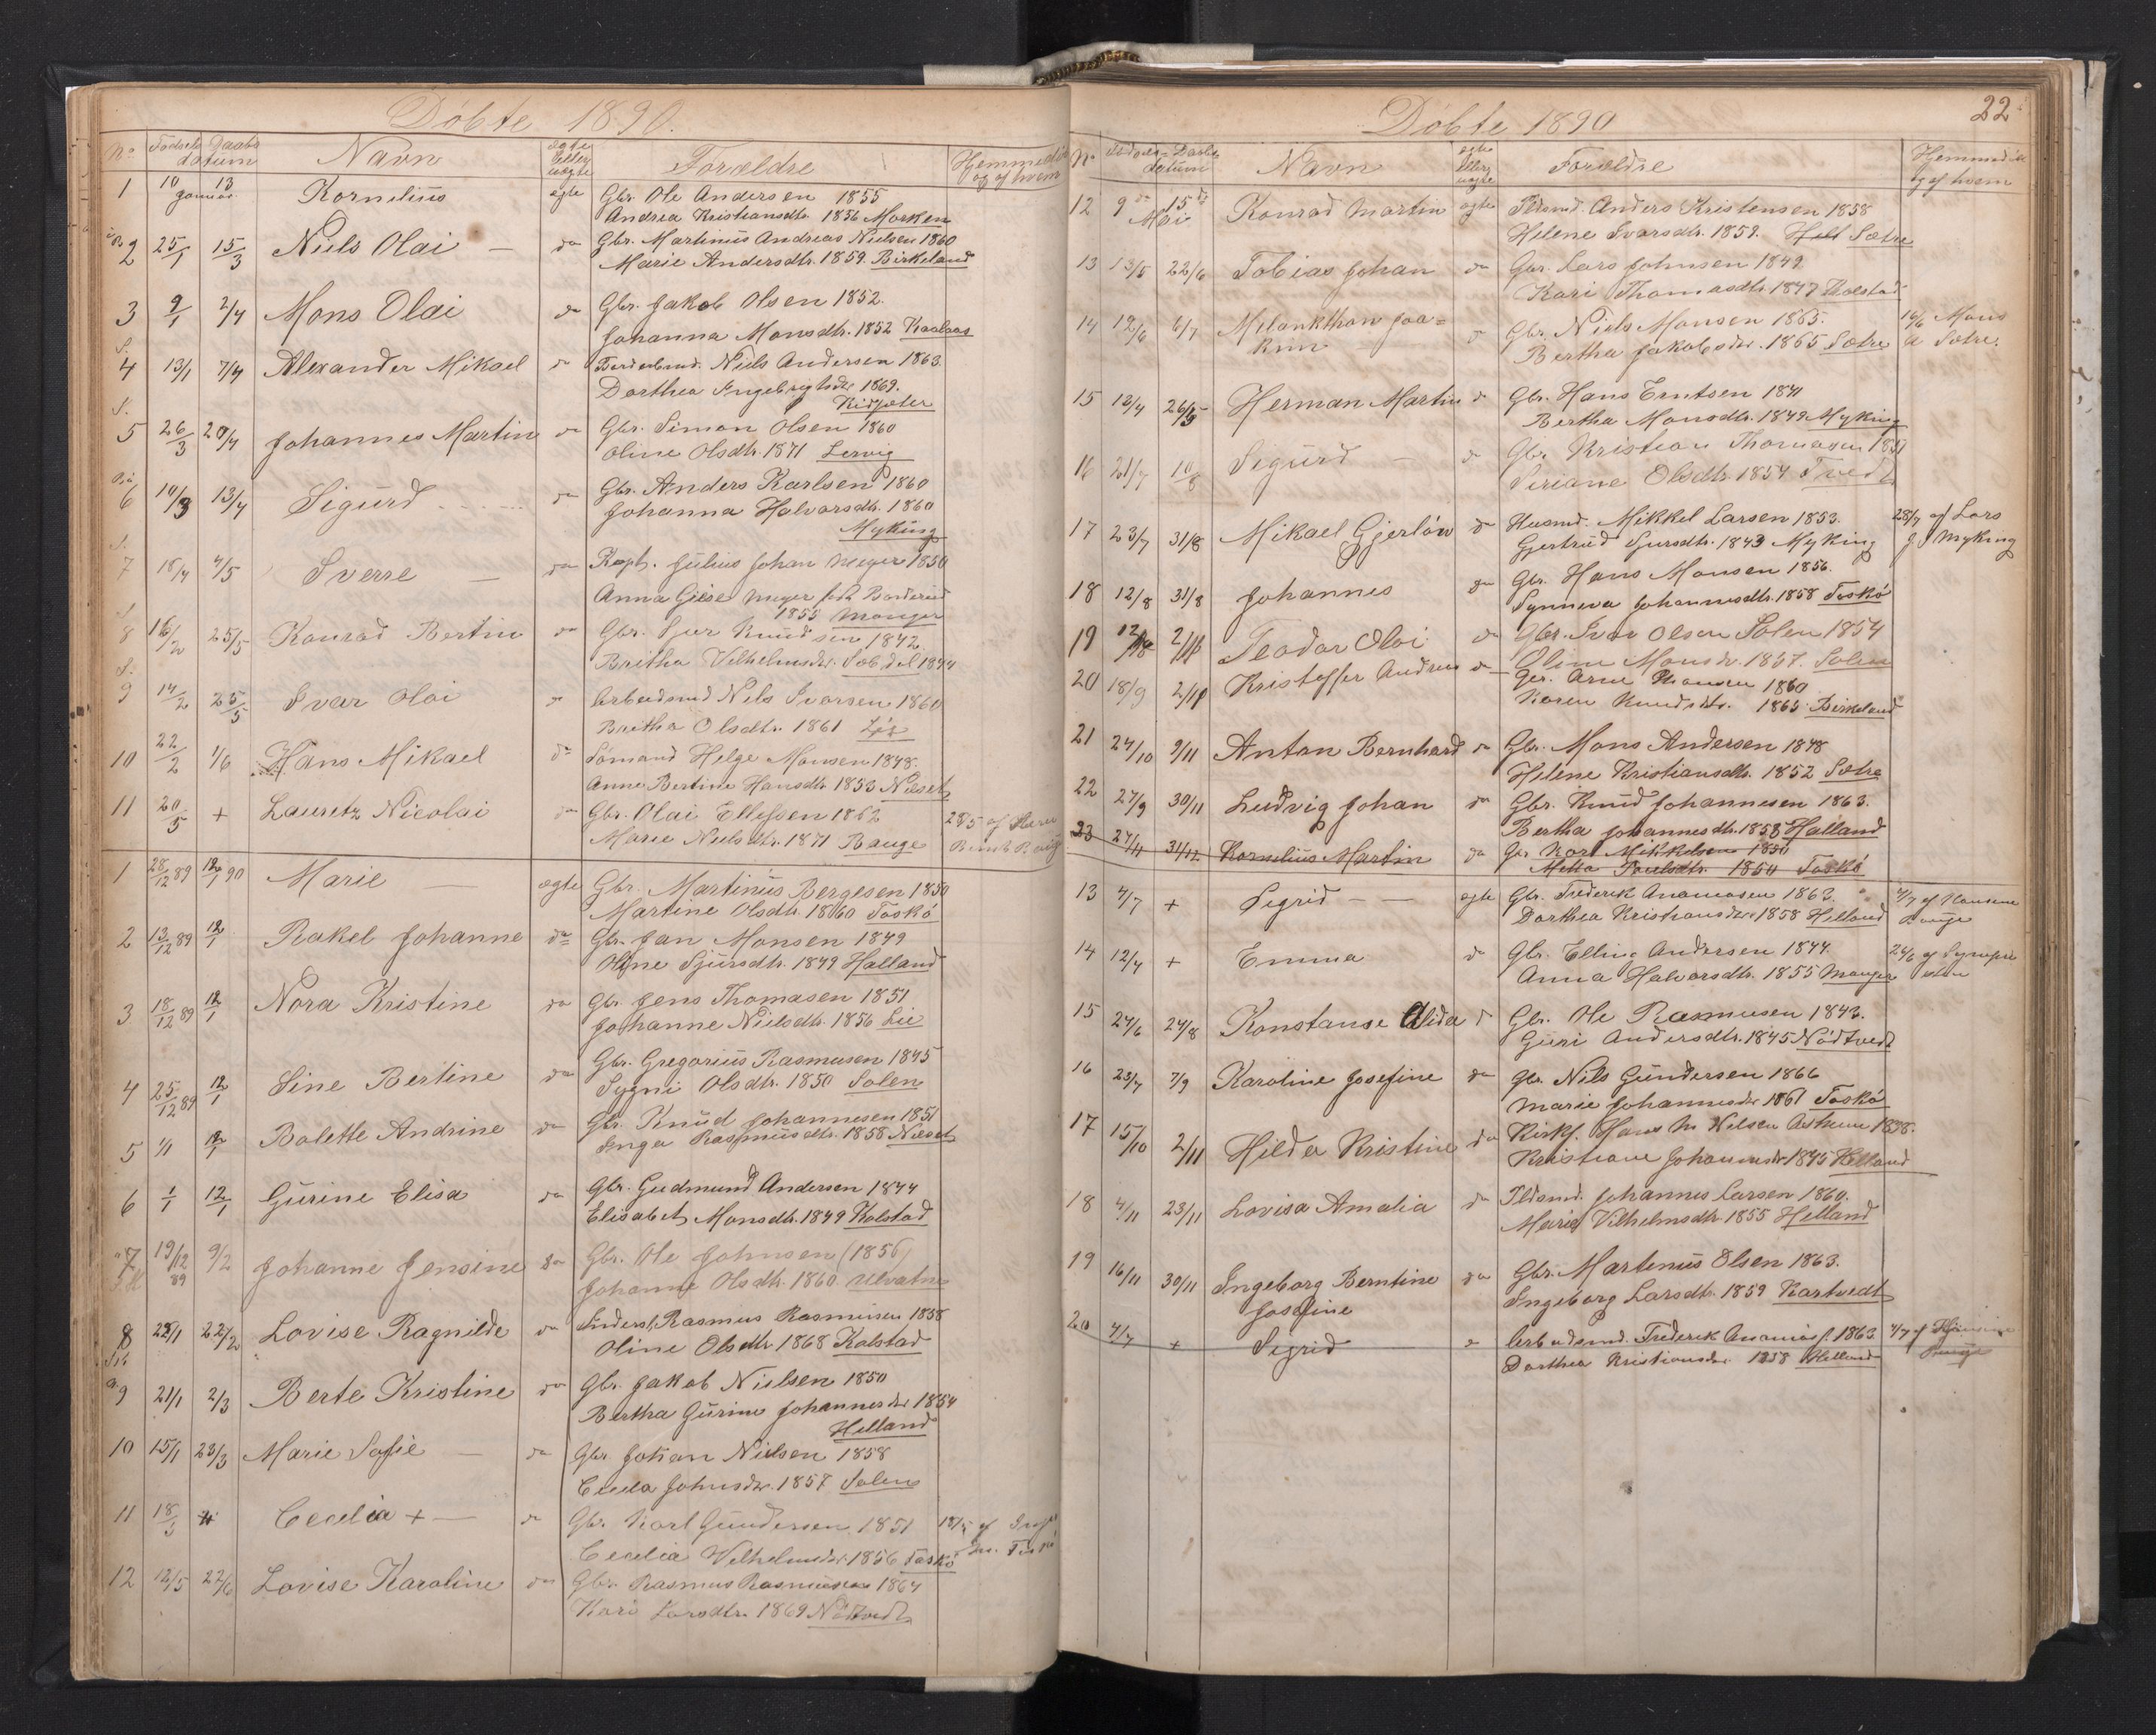 Döbte 1890.
No Födsels Daabs datum Navn ægte Eller uægte Forældre Hjemmedöbt og af hvem
1 10 13 Januar Kornelius ægte Gbr. Ole Andersen 1855
Andrea Kristiansdtr. 1856 Morken
2 25/1 15/3 Niels Olai — do Gbr. Martinus Andreas Nielsen 1860
Marie Andersdtr. 1859. Birkeland
3 9/1 2/4 Mons Olai do Gbr. Jakob Olsen 1852.
Johanna Monsdtr. 1852
S.
4 13/1 7/4 Alexander Mikael do Niels Andersen 1863.
Dorthea Ingebrigtsdr 1869.
S.
5 26/3 20/4 Johannes Martin do Gbr. Simon Olsen 1860
Oline Olsdtr. 1871 Lervig
6 10/3 13/4 Sigurd do Gbr. Anders Karlsen 1860
Johanna Halvorsdtr. 1860
Myking
S.
7 18/4 4/5 Sverre — do Kapt. Julius Johan Meyer 1850
Anna Giese Meyer
1855 Manger
S.
8 16/2 25/5 Konrad Bertin do Gbr. Sjur Knudsen 1842.
Britha Vilhelmsdr. 1844
S.
9 14/2 25/5 Ivar Olai do Arbeidsmd Nils Ivarsen 1860
Britha Olsdtr. 1861
10 22/2 1/6 Hans Mikael do Sömand Helge Monsen 1848.
Anne Bertine Hansdtr 1853 Nieset
11 20/5 + Lauretz Nicolai do Gbr. Olai Ellefsen 1862 28/5 af
Marie Nielsdtr. 1871 Bauge
1 28/12 89 12/1 90 Marie — ægte Gbr. Martinus Bergesen 1850
Martine Olsdtr. 1860 Toskö
2 13/12 89 12/1 Rakel Johanne do Gbr. Jan Monsen 1849
Oline Sjursdtr. 1849 Halland
3 18/12 89 12/1 Nora Kristine do Gbr. Jens Thomasen 1851
Johanne Nielsdtr. 1856 Lie
4 25/12 89 12/1 Sine Bertine do Gbr. Gregorius Rasmusen 1845
Sygni Olsdtr. 1850 Solen
5 1/1 12/1 Bolette Andrine do Gbr. Knud Johannesen 1851
Inga Rasmusdtr. 1858 Nieset
6 1/1 12/1 Gurine Elisa do Gbr. Gudmund Andersen 1844
Elisabet Monsdtr. 1849 Kolstad
7 19/12 89 9/2 Johanne Jensine do Gbr. Ole Johnsen (1856)
Johanne Olsdtr. 1860. Ulvatne
8 28/1 22/2 Lovise Ragnilde do Rasmus Rasmusen 1858
Oline Olsdtr 1868 Kolstad
9 21/1 2/3 Berte Kristine do Gbr. Jakob Nielsen 1850
Bertha Gurine Johannesdr 1854
Helland
10 15/1 23/3 Marie Sofie — do Gbr Johan Nielsen 1858
Cecelia Johnsdr. 1857 Solen
11 18/3 + Cecelia + — do Gbr. Karl Gundersen 1851 18/3 af
Cecelia Velhelmsdr. 1856 Toskö
12 12/5 22/6 Lovise Karoline do Gbr. Rasmus Rasmusen 1864
Kari Larsdtr. 1869 Nödtvedt
22
Döbte 1890
No Födsels- Daabs- datum Navn ægte Eller uægte Forældre Hjemmedöbt og af hvem
12 9de 15de Mai Konrad Martin ægte Pldsmd. Anders Kristensen 1858
Helene Ivarsdtr. 1859. Hell Sætre
13 13/5 22/6 Tobias Johan do Gbr. Lars Johnsen 1849
Kari Thomasdtr. 1847 Kolstad
14 12/6 6/7 Melankthon Joa= do Gbr. Niels Monsen 1865. 16/6 Mons
kim Bertha Jakobsdr. 1865 Sætre A Sötre.
15 13/4 26/5 Herman Martin do Gbr. Hans Erntsen 1841
Bertha Monsdtr. 1849 Myking
16 21/7 10/8 Sigurd — do Gbr. Kristian Thomasen 1851
Siriane Olsdtr. 1854 Tvedt
17 23/7 31/8 Mikael Gjerlöw do Husmd. Mikkel Larsen 1853. 28/7 af Lars
Gjertrud Sjursdtr. 1843 Myking J Myking
18 12/8 31/8 Johannes do Gbr. Hans Monsen 1856.
Synneva Johannesdtr. 1858 Toskö
19 Teodor Olai do Gbr. Ivar Olsen Solen 1854
Oline Monsdr. 1857. Solen
20 18/9 Kristoffer Andreas do Gbr. Arne Hansen 1860
Karen Knudsdtr. 1865 Birkeland
21 24/10 9/11 Anton Bernhard do Gbr. Mons Andersen 1848
Helene Kristiansdtr. 1852 Sætre
22 27/9 30/11 Ludvig Johan do Gbr. Knud Johannesen 1863.
Bertha Johannesdtr. 1858 Halland
23 27/11 31/12 Kornelius Martin do Gbr Karl Mikkelsen 1850
Metta Poulsdtr. 1850 Toskö
13 4/7 + Sigrid — — ægte Gbr. Frederik Ananiasen 1863. 4/7 af
Dorthea Kristiansdtr 1858 Helland
14 12/4 + Emma do Gbr. Elling Andersen 1844.
Anna Halvorsdtr. 1855 Manger
15 24/6 24/8 Konstanse Alida do Gbr. Ole Rasmusen 1843.
Guri Andersdtr. 1845 Nödtvedt
16 23/7 7/9 Karoline Josefine do Gbr. Nils Gundersen 1866
Marie Johannesdr 1861 Toskö
17 15/10 2/11 Hilda Kristine do Kirks. Hans M Nilsen 1838.
Kristiane Johannesdr 1845 Helland
18 4/11 23/11 Lovisa Amalia do Pldsmd. Johannes Larsen 1860.
Marie Vilhelmsdtr 1855 Helland
19 16/11 30/11 Ingeborg Berntine do Gbr. Martinus Olsen 1863.
Josefine Ingeborg Larsdtr. 1859 Kartvedt
20 4/7 + Sigrid do Arbeidsmd. Frederik Ananias. 1863 4/7 af
Dorthea Kristiansdr. 1858 Helland